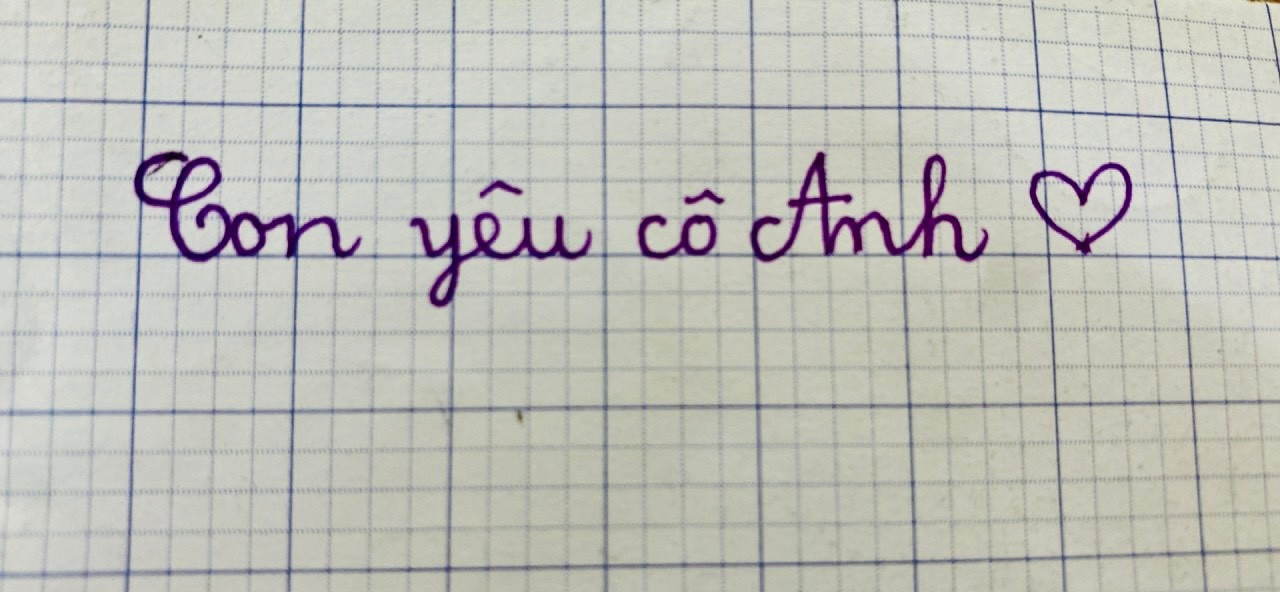 Con yêu cô Anh ♡